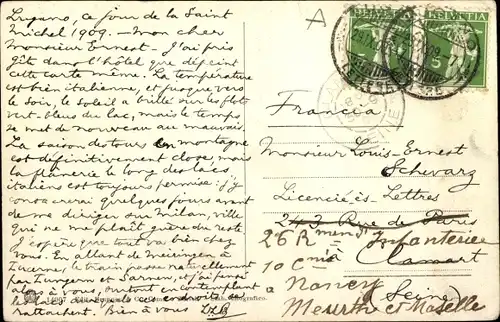 Lugano, ce jour de la Saint
Michel 1909. — Mon cher
Monsieur Ernest. — J'ai pris
gîte dans l'hôtel que dépeint
cette carte même. La température
est bien italienne, et jusque vers
le soir, le soleil a brillé sur les flots
vert-bleus du lac, mais le temps
se met de nouveau au mauvais.
La saison des tours en montagne
est définitivement close, mais
la flânerie le long des lacs
italiens est toujours permise. J'y
consacrerai quelques jours avant
de me diriger sur Milan, ville
qui ne me plaît guère du reste.
J'espère que tout va bien chez
Vous. En allant de Meiringen à
Lucerne, le train passe naturellement
par Lungern et Sarnen, et j'ai pensé
alors à vous, surtout en contemplant
le
endroit de
rattachent. Bien à vous
A
HELVETIA
Francia
Monsieur Louis-Ernest
Schevarz
Licencié-ès-Lettres
243 Rue de Paris
26 R=ment d'Infanterie
10 C=nie
Clamart
à Nancy
(Seine)
Meurthe et Moselle